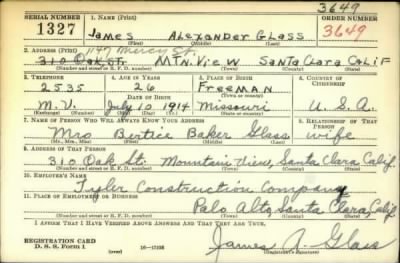 3649
SERIAL NUMBER 1. NAME (Print) ORDER NUMBER
1327 James Alexander Glass 3649
(First) (Middle) (Last)
2. ADDRESS (Print) 1147 Mercy St.
310 Oak St. Mtn. View Santa Clara Calif
(Number and street or R. F. D. number) (Town) (County) (State)
3. TELEPHONE 4. AGE IN YEARS 5. PLACE OF BIRTH 6. COUNTRY OF CITIZENSHIP
2535 26 Freeman
DATE OF BIRTH (Town or county)
M.V. July 10 1914 Missouri U.S.A.
(Exchange) (Mo.) (Day) (Yr.) (State or country)
7. NAME OF PERSON WHO WILL ALWAYS KNOW YOUR ADDRESS 8. RELATIONSHIP OF THAT PERSON
Mrs Bertice Baker Glass wife
(Mr., Mrs., Miss) (First) (Middle) (Last)
9. ADDRESS OF THAT PERSON
310 Oak St. Mountain View, Santa Clara Calif.
(Number and street or R. F. D. number) (Town) (County) (State)
10. EMPLOYER'S NAME
Tyler Construction Company
11. PLACE OF EMPLOYMENT OR BUSINESS
Palo Alto, Santa Clara, Calif.
(Number and street or R. F. D. number) (Town) (County) (State)
I AFFIRM THAT I HAVE VERIFIED ABOVE ANSWERS AND THAT THEY ARE TRUE.
REGISTRATION CARD
D. S. S. Form 1 (over) 16—17105 James A. Glass
(Registrant's signature)